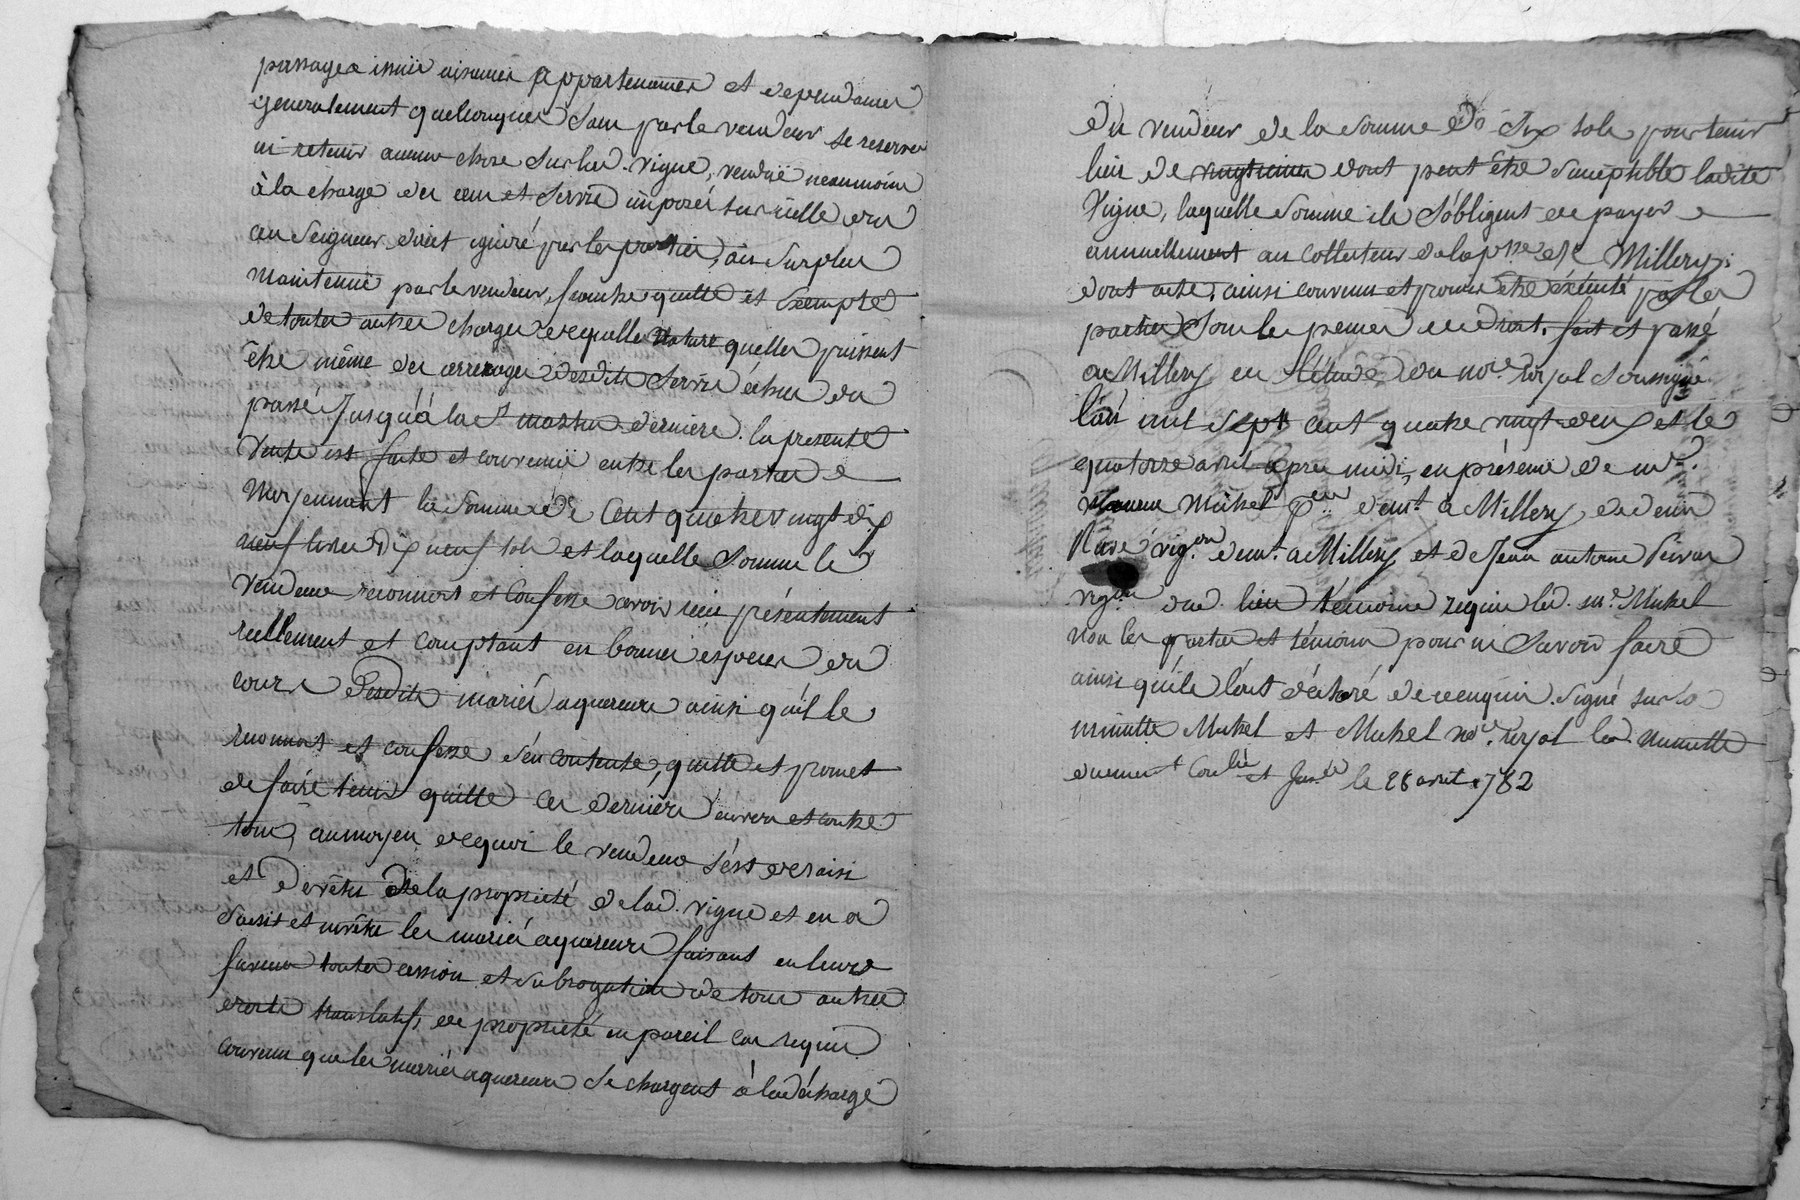 passages issües aisances appartenances et dependances
generalement quelconques sans par le vendeur se reserver
ni retenir aucune chose sur lad. vigne, vendüe neanmoins
à la charge des cens et servis imposés sur icelle dus
au Seigneur direct ignoré par les parties, au surplus
maintenüe par le vendeur, franche quitte et exempte
de toutes autres charges de quelle nature quelles puissent
être même des arrerages desdits servis échus du
passé Jusqu'à la St martin derniere. la presente
vente est faite et convenüe entre les parties
moyennant la somme de Cent quatre vingt dix
neuf livres dix neuf sols et laquelle somme le
vendeur reconnoit et confesse avoir reçu présentement
reellement et comptant en bonnes especes du
cours desdits mariés aquereurs ainsi qu'il le
reconnoit et confesse s'en contente, quitte et promet
de faire tenir quitte ces derniers envers et contre
tous, au moyen de quoi le vendeur s'est desaisi
et devêtu de la propriété de lad. vigne et en a
saisit et invêtu les mariés aquereurs faisant en leurs
faveurs toutes cession et subrogation de tous autres
droits translatifs de propriété en pareil cas requis
convenu que les mariés aquereurs se chargent à la décharge
du vendeur de la somme de Six sols pour tenir
lieu de vingtieme dont peut être susceptible ladite
Vigne, laquelle somme ils s'obligent de payer
annuellement au collecteur de la psse de Millery;
dont acte, ainsi convenu et promis être éxécuté par les
parties sous les peines de droit. fait et passé
à Millery en l'étude du nore royal soussigné
l'an mil sept cent quatre vingt deux et le
quatorze avril après midi, en présence de mr.
Michel demt. à Millery, de
vigon. demt. a Millery et de Jean antoine
vigon dud. lieu témoins requis led. mr. Michel
non les parties et témoins pour ne savoir faire
ainsi qu'ils l'ont déclaré de ce enquis. signé sur la
minutte Michel et Michel nore. royal lad. minutte
duement Conlée et Insée le 28 avril 1782